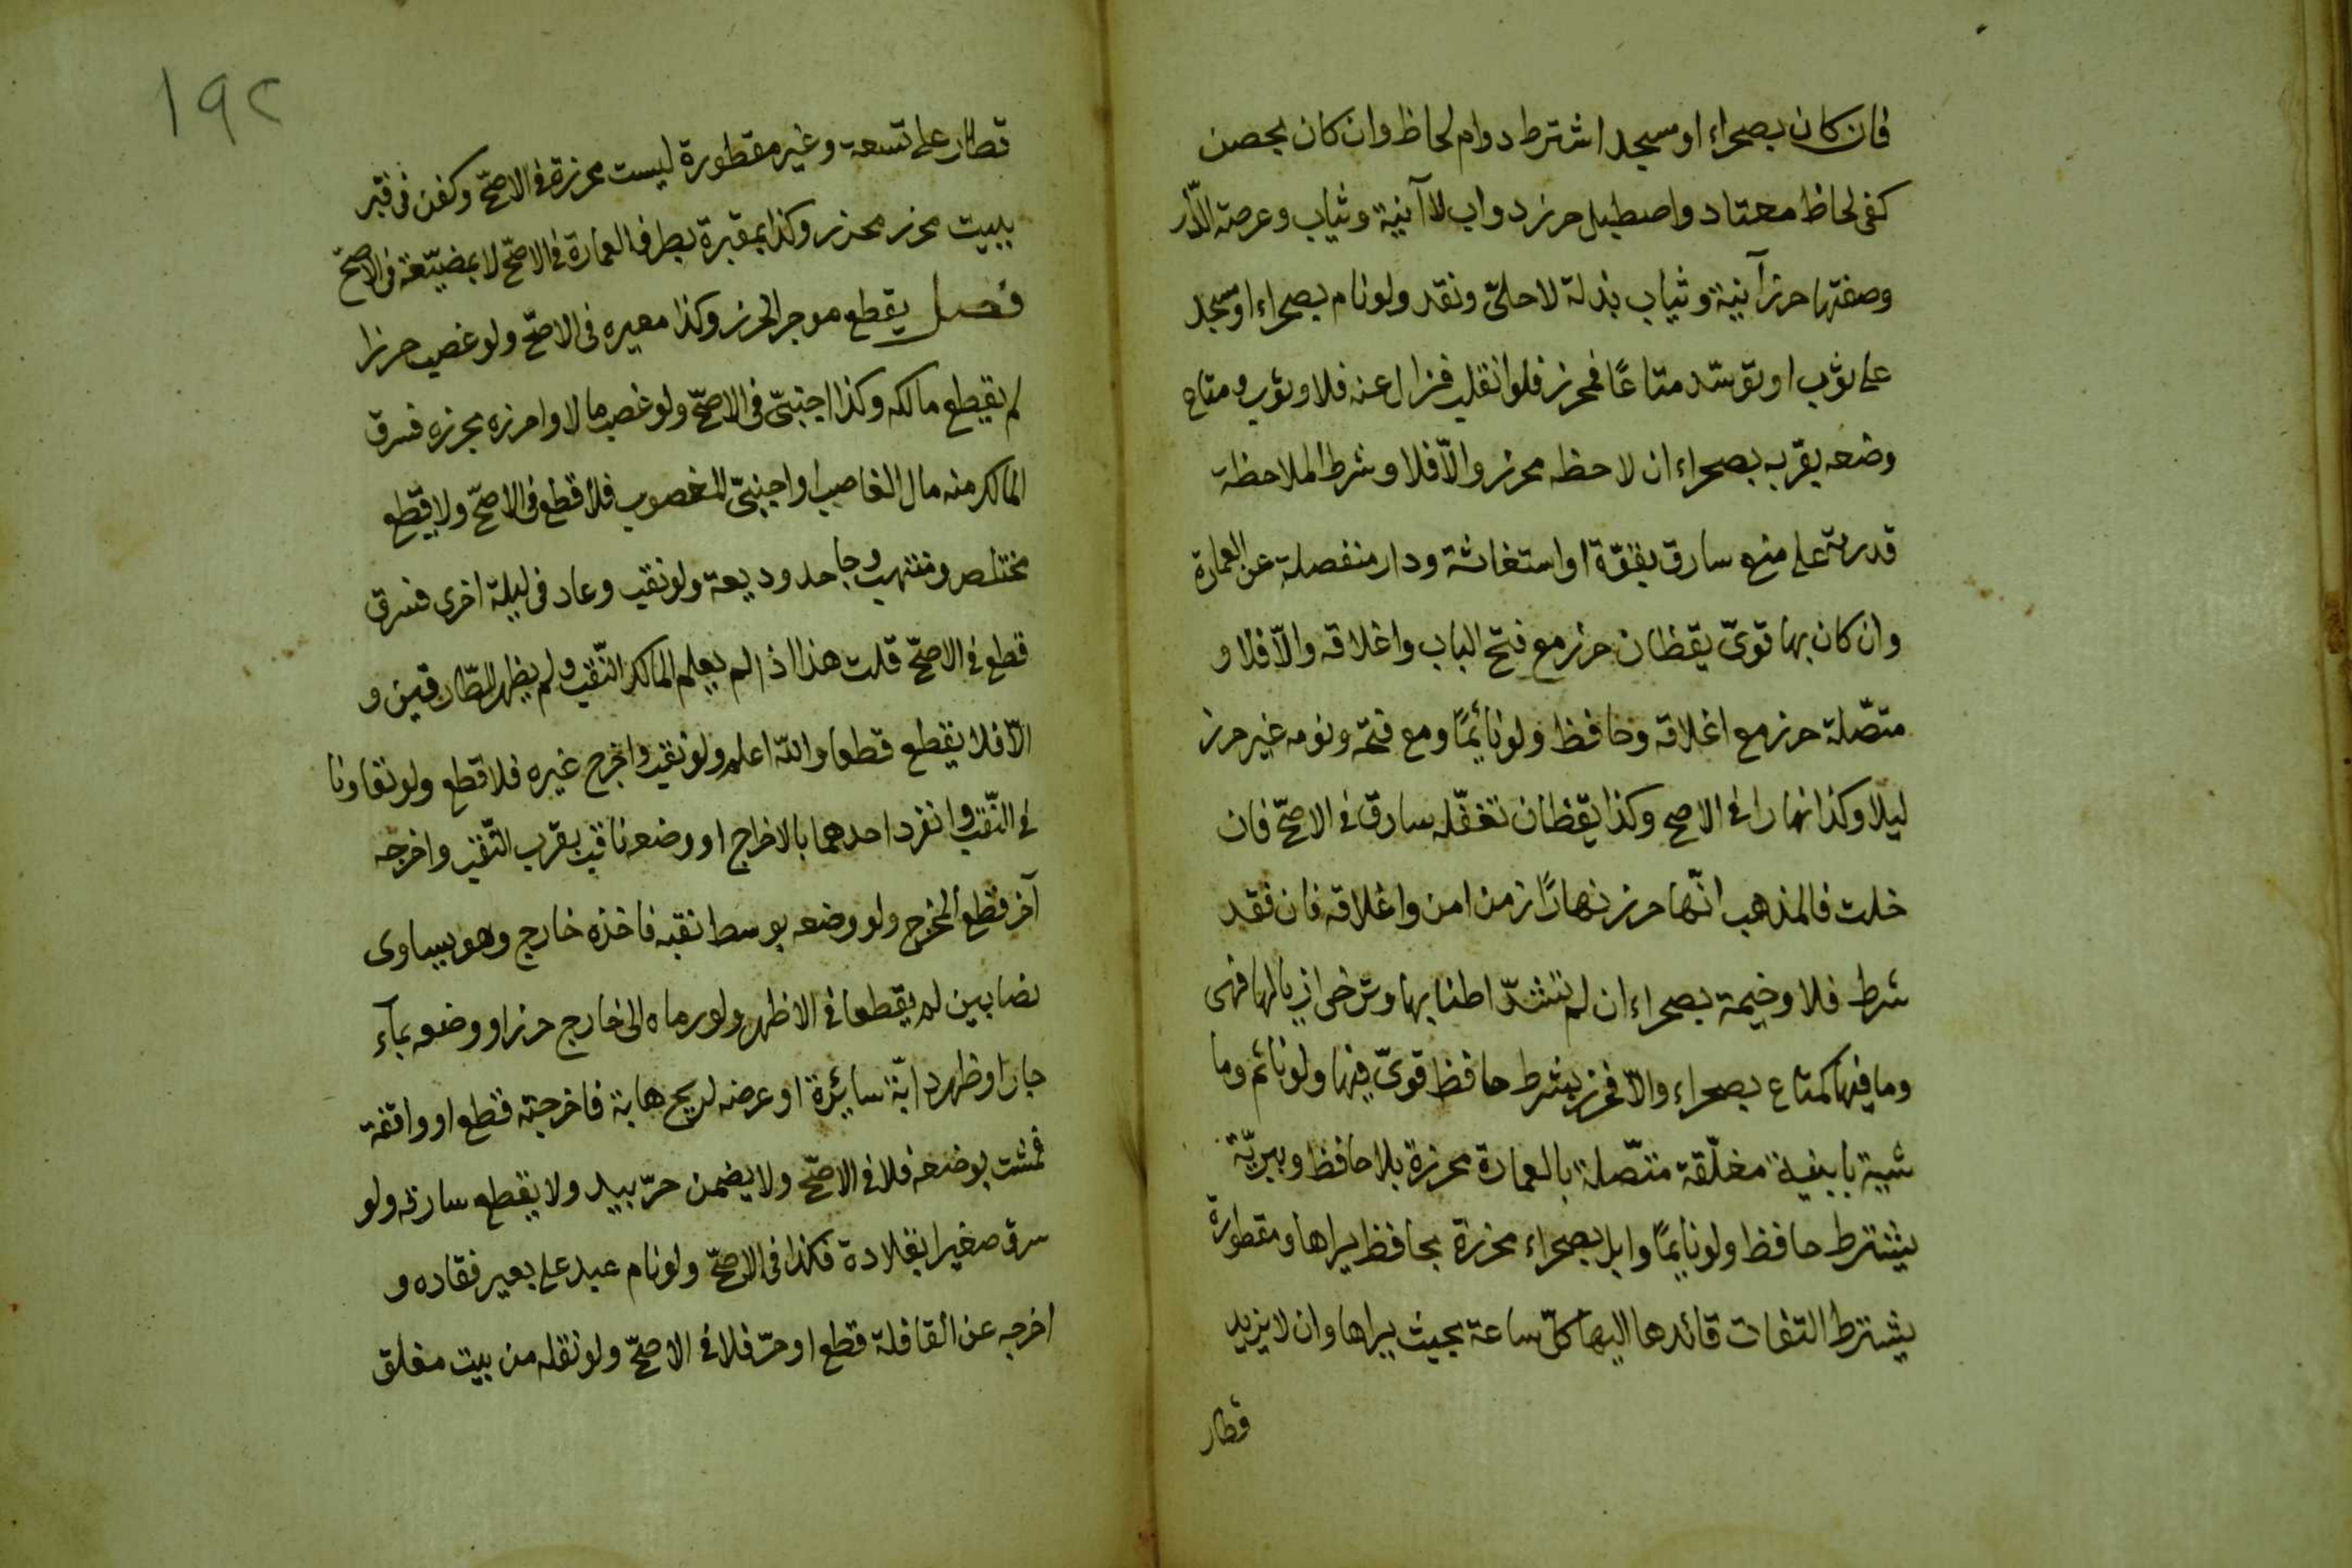 فان كان بصحراء او مسجد اشترط دوام لحاظ وان كان بحصن
كفى لحاظ معتاد واصطبل حرز دواب لا آنية وثياب وعرصة الدّار
وصفتها حرز آنية وثياب بذلة لا حلىّ ونقد ولو نام بصحراء او مسجد
على ثوب او توسّد متاعًا فمحرز فلو انقلب فزال عنه فلا وثوب ومتاع
وضعه بقربه بصحراء ان لاحظه محرز والّا فلا وشرط الملاحظة
قدرته على منع سارق بقوّة او استغاثة ودار منفصلة عن العمارة
وان كان بها قوىّ يقظان حرز مع فتح الباب واغلاقه والّا فلا و
متصّلة حرز مع اغلاقه وحافظ ولو نائمًا ومع فتحه ونومه غير حرز
ليلا وكذا نهارا في الاصح وكذا يقظان تغفّله سارق في الاصحّ فان
خلت فالمذهب انّها حرز نهارًا زمن امن واغلاقه فان فقد
شرط فلا وخيمة بصحراء ان لم تشدّ اطنابها وترخى اذيالها فهى
وما فيها كمتاع بصحراء والّا فحرز بشرط حافظ قوىّ فيها ولو نائم وما
شية بابنية مغلّقة متّصلة بالعمارة محرزة بلا حافظ وببريّة
يشترط حافظ ولو نايمًا وابل بصحراء محرزة بحافظ يراها ومقطورة
يشترط التفات قائدها اليها كلّ ساعة بحيث يراها وان لا يزيد
قطار
١٩٢
قطار على تسعة وغير مقطورة ليست محرزة في الاصحّ وكفن في قبر
ببيت محرز محرز وكذا بمقبرة بطرف العمارة في الاصحّ لا بمضيّعة في الاصحّ
فصل يقطع موجر الحرز وكذا معيره في الاصحّ ولو غصب حرزا
لم يقطع مالكه وكذا اجنبىّ في الاصحّ ولو غصب مالا واحرزه بحرزه فسرق
المالك منه مال الغاصب او اجنبىّ المغصوب فلا قطع في الاصحّ ولا يقطع
مختلس ومنتهب وجاحد وديعة ولو نقب وعاد في ليلة اخرى فسرق
قطع في الاصحّ قلت هذا اذا لم يعلم المالك النّقب ولم يظهر للطّارقين و
الّا فلا يقطع قطعا والله اعلم ولو نقب واخرج غيره فلا قطع ولو تعاونا
في النّقب وانفرد احدهما بالاخراج او وضعه ناقب بقرب النّقب واخرجه
آخر قطع المخرج ولو وضعه بوسط نقبه فاخذه خارج وهو يساوى
نصابين لم يقطعا في الاظهر ولو رماه الى خارج حرز او وضعه بمآء
جار او ظهر دابّة سايرة او عرضه لريح هابة فاخرجته قطع او واقفة
فمشت بوضعه فلا في الاصحّ ولا يضمن حرّ بيد ولا يقطع سارقه ولو
سرق صغيرا بقلادة فكذا في الاصحّ ولو نام عبد على بعير فقاده و
اخرجه عن القافلة قطع او حرّ فلا في الاصحّ ولو نقله من بيت مغلق